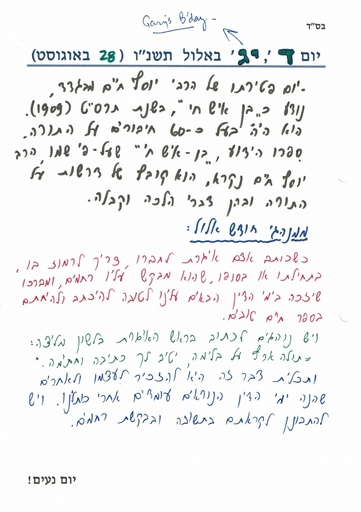 Gary's B'day -
בס"ד
יום ד', יג' באלול תשנ"ו (28 באוגוסט)
-יום פטירתו של הרב יוסף חיים מבגדד,
נודע כ"בן איש חי", בשנת תרס"ט (1909).
הוא היה בעל כ-60 חיבורים על התורה.
ספרו הידוע, "בן-איש חי" שעל-פי שמו הרב
יוסף חיים נקרא, הוא קובץ של דרשות על
התורה ובהן דברי הלכה וקבלה.
ממנהגי חודש אלול:
כשכותב אדם איגרת לחברו, צריך לרמוז בו,
בתחילתו או בסופו, שהוא מבקש עליו רחמים, ומברכו
שיזכה בימי הדין הבאים עלינו לטובה להיכתב ולהיחתם
בספר חיים טובים.
ויש נוהגים לכתוב בראש האיגרת בלשון מליצה:
"תולה ארץ על בלימה, יטיב לך כתיבה וחתימה."
ותכלית דבר זה היא להזכיר לעצמו ולאחרים
שהנה ימי הדין הנוראים עומדים אחרי כתלנו. ויש
להתכונן לקראתם בתשובה ובבקשת רחמים.
יום נעים!